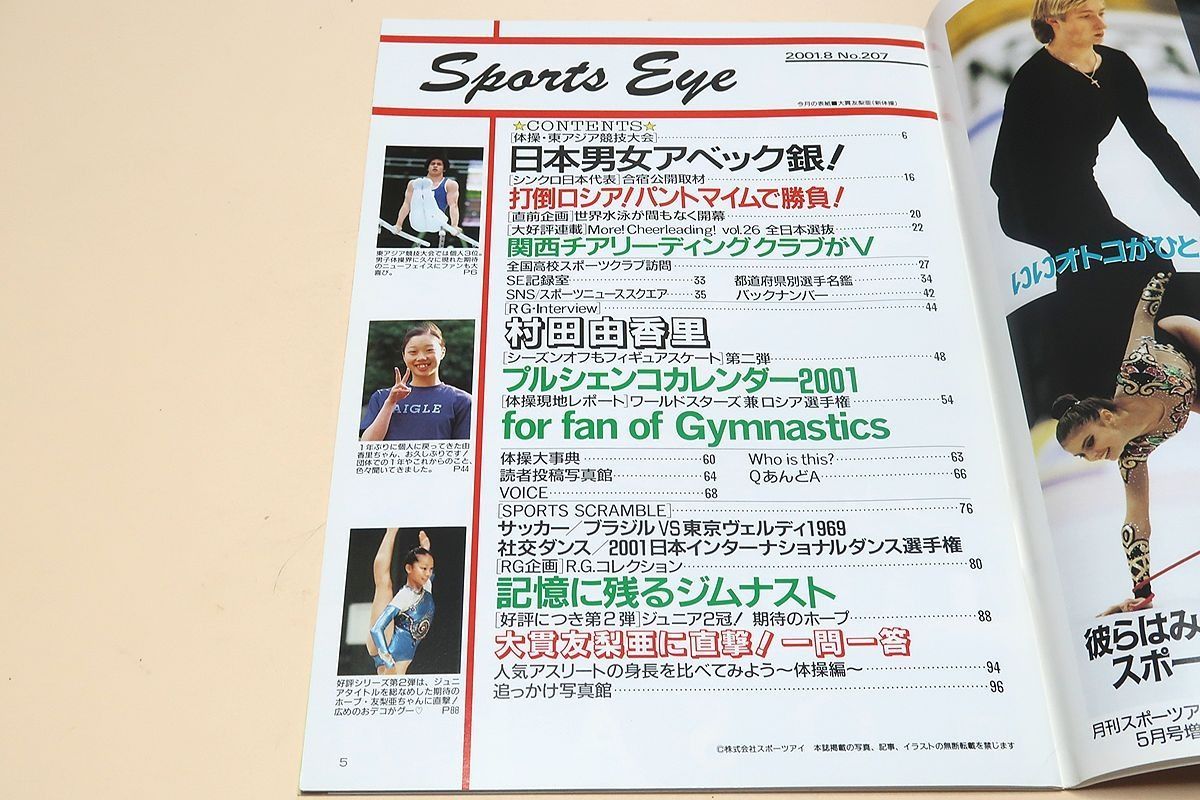 Sports Eye
2001.8 No.207
今月の表紙■大貫友梨亜(新体操)
☆CONTENTS☆
[体操・東アジア競技大会] 6
日本男女アベック銀!
[シンクロ日本代表]合宿公開取材 16
打倒ロシア!パントマイムで勝負!
[直前企画]世界水泳が間もなく開幕 20
[大好評連載]More! Cheerleading! vol.26 全日本選抜 22
関西チアリーディングクラブがV
全国高校スポーツクラブ訪問 27
SE記録室 33 都道府県別選手名鑑 34
SNS/スポーツニューススクエア 35 バックナンバー 42
[RG・Interview] 44
村田由香里
[シーズンオフもフィギュアスケート]第二弾 48
プルシェンコカレンダー2001
[体操現地レポート]ワールドスターズ 兼 ロシア選手権 54
for fan of Gymnastics
体操大事典 60 Who is this? 63
読者投稿写真館 64 QあんどA 66
VOICE 68
[SPORTS SCRAMBLE] 76
サッカー/ブラジル VS 東京ヴェルディ1969
社交ダンス/2001日本インターナショナルダンス選手権
[RG企画]R.G.コレクション 80
記憶に残るジムナスト
[好評につき第2弾]ジュニア2冠! 期待のホープ 88
大貫友梨亜に直撃!一問一答
人気アスリートの身長を比べてみよう〜体操編〜 94
追っかけ写真館 96
©株式会社スポーツアイ 本誌掲載の写真、記事、イラストの無断転載を禁じます
東アジア競技大会では個人3位。
男子体操界に久々に現れた期待
のニューフェイスにファンも大
喜び。 P6
AIGLE
1年ぶりに個人に戻ってきた由
香里ちゃん、お久しぶりです!
団体での1年やこれからのこと、
色々聞いてきました。 P44
好評シリーズ第2弾は、ジュニ
アタイトルを総なめした期待の
ホープ・友梨亜ちゃんに直撃!
広めのおデコがグー♡ P88
5
オトコがひと
彼らはみ
スポー
月刊スポーツア
5月号増